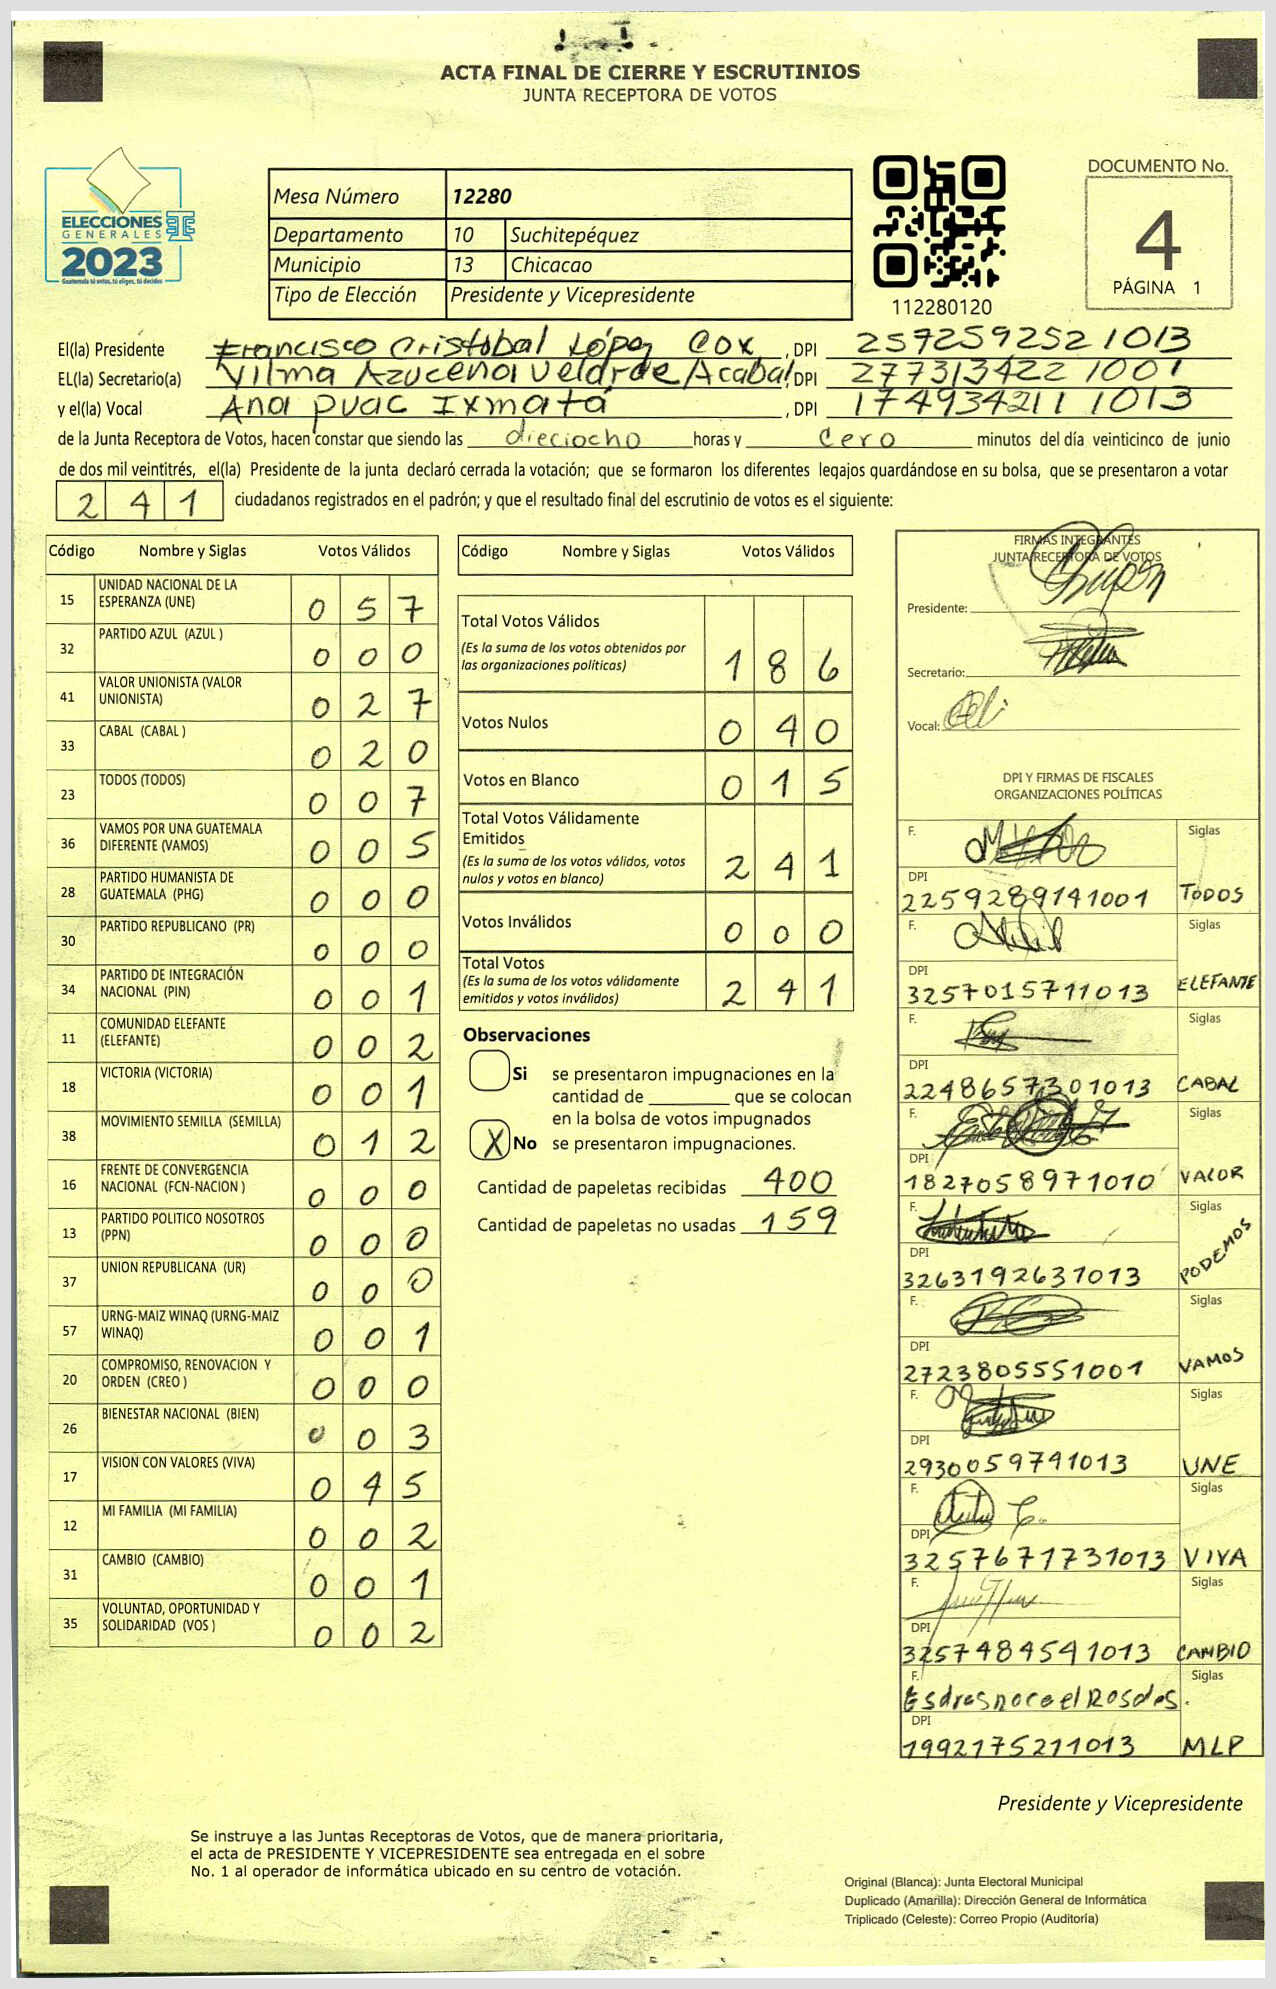 ACTA FINAL DE CIERRE Y ESCRUTINIOS
JUNTA RECEPTORA DE VOTOS
ELECCIONES
GENERALES
2023
Guatemala tú entas, tú eliges, tú decides
Mesa Número 12280
Departamento 10 Suchitepéquez
Municipio 13 Chicacao
Tipo de Elección Presidente y Vicepresidente
112280120
DOCUMENTO No.
4
PÁGINA 1
El(la) Presidente Francisco Cristobal López Cox, DPI 257259252 1013
EL(la) Secretario(a) Vilma Azucena Velarde Acabal, DPI 277313422 1001
y el(la) Vocal Ana Puac Ixmatá, DPI 174934211 1013
de la Junta Receptora de Votos, hacen constar que siendo las dieciocho horas y cero minutos del día veinticinco de junio
de dos mil veintitrés, el(la) Presidente de la junta declaró cerrada la votación; que se formaron los diferentes legajos guardándose en su bolsa, que se presentaron a votar
241 ciudadanos registrados en el padrón; y que el resultado final del escrutinio de votos es el siguiente:
Código Nombre y Siglas Votos Válidos
15 UNIDAD NACIONAL DE LA ESPERANZA (UNE) 0 5 7
32 PARTIDO AZUL (AZUL ) 0 0 0
41 VALOR UNIONISTA (VALOR UNIONISTA) 0 2 7
33 CABAL (CABAL ) 0 2 0
23 TODOS (TODOS) 0 0 7
36 VAMOS POR UNA GUATEMALA DIFERENTE (VAMOS) 0 0 5
28 PARTIDO HUMANISTA DE GUATEMALA (PHG) 0 0 0
30 PARTIDO REPUBLICANO (PR) 0 0 0
34 PARTIDO DE INTEGRACIÓN NACIONAL (PIN) 0 0 1
11 COMUNIDAD ELEFANTE (ELEFANTE) 0 0 2
18 VICTORIA (VICTORIA) 0 0 1
38 MOVIMIENTO SEMILLA (SEMILLA) 0 1 2
16 FRENTE DE CONVERGENCIA NACIONAL (FCN-NACION ) 0 0 0
13 PARTIDO POLITICO NOSOTROS (PPN) 0 0 0
37 UNION REPUBLICANA (UR) 0 0 0
57 URNG-MAIZ WINAQ (URNG-MAIZ WINAQ) 0 0 1
20 COMPROMISO, RENOVACION Y ORDEN (CREO ) 0 0 0
26 BIENESTAR NACIONAL (BIEN) 0 0 3
17 VISION CON VALORES (VIVA) 0 4 5
12 MI FAMILIA (MI FAMILIA) 0 0 2
31 CAMBIO (CAMBIO) 0 0 1
35 VOLUNTAD, OPORTUNIDAD Y SOLIDARIDAD (VOS ) 0 0 2
Código Nombre y Siglas Votos Válidos
Total Votos Válidos
(Es la suma de los votos obtenidos por
las organizaciones políticas) 1 8 6
Votos Nulos 0 4 0
Votos en Blanco 0 1 5
Total Votos Válidamente
Emitidos
(Es la suma de los votos válidos, votos
nulos y votos en blanco) 2 4 1
Votos Inválidos 0 0 0
Total Votos
(Es la suma de los votos válidamente
emitidos y votos inválidos) 2 4 1
Observaciones
Si se presentaron impugnaciones en la
cantidad de ________ que se colocan
en la bolsa de votos impugnados
X No se presentaron impugnaciones.
Cantidad de papeletas recibidas 400
Cantidad de papeletas no usadas 159
FIRMAS INTEGRANTES
JUNTA RECEPTORA DE VOTOS
Presidente:
Secretario:
Vocal:
DPI Y FIRMAS DE FISCALES
ORGANIZACIONES POLÍTICAS
F. Siglas
DPI
2259289141001 TODOS
F. Siglas
DPI
3257015711013 ELEFANTE
F. Siglas
DPI
2248657301013 CABAL
F. Siglas
DPI
1827058971010 VALOR
F. Siglas
DPI
3263192631013 PODEMOS
F. Siglas
DPI
2723805551001 VAMOS
F. Siglas
DPI
2930059741013 UNE
F. Siglas
DPI
3257671731013 VIVA
F. Siglas
DPI
3257484541013 CAMBIO
F. Siglas
DPI
1992175211013 MLP
Presidente y Vicepresidente
Se instruye a las Juntas Receptoras de Votos, que de manera prioritaria,
el acta de PRESIDENTE Y VICEPRESIDENTE sea entregada en el sobre
No. 1 al operador de informática ubicado en su centro de votación.
Original (Blanca): Junta Electoral Municipal
Duplicado (Amarilla): Dirección General de Informática
Triplicado (Celeste): Correo Propio (Auditoría)